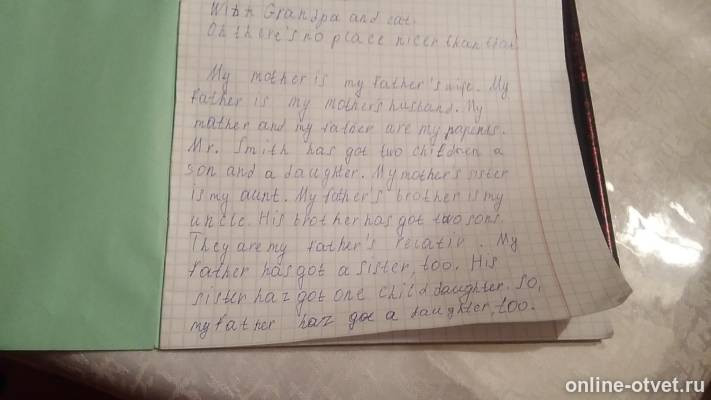 With Grandpa and cat.
Oh there's no place nicer than that.
My mother is my father's wife. My
father is my mother's husband. My
mother and my father are my parents.
Mr. Smith has got two children a
son and a daughter. My mother's sister
is my aunt. My father's brother is my
uncle. His brother has got two sons.
They are my father's relativ. My
father has got a sister, too. His
sister haz got one child daughter. So,
my father haz got a daughter, too.
online-otvet.ru